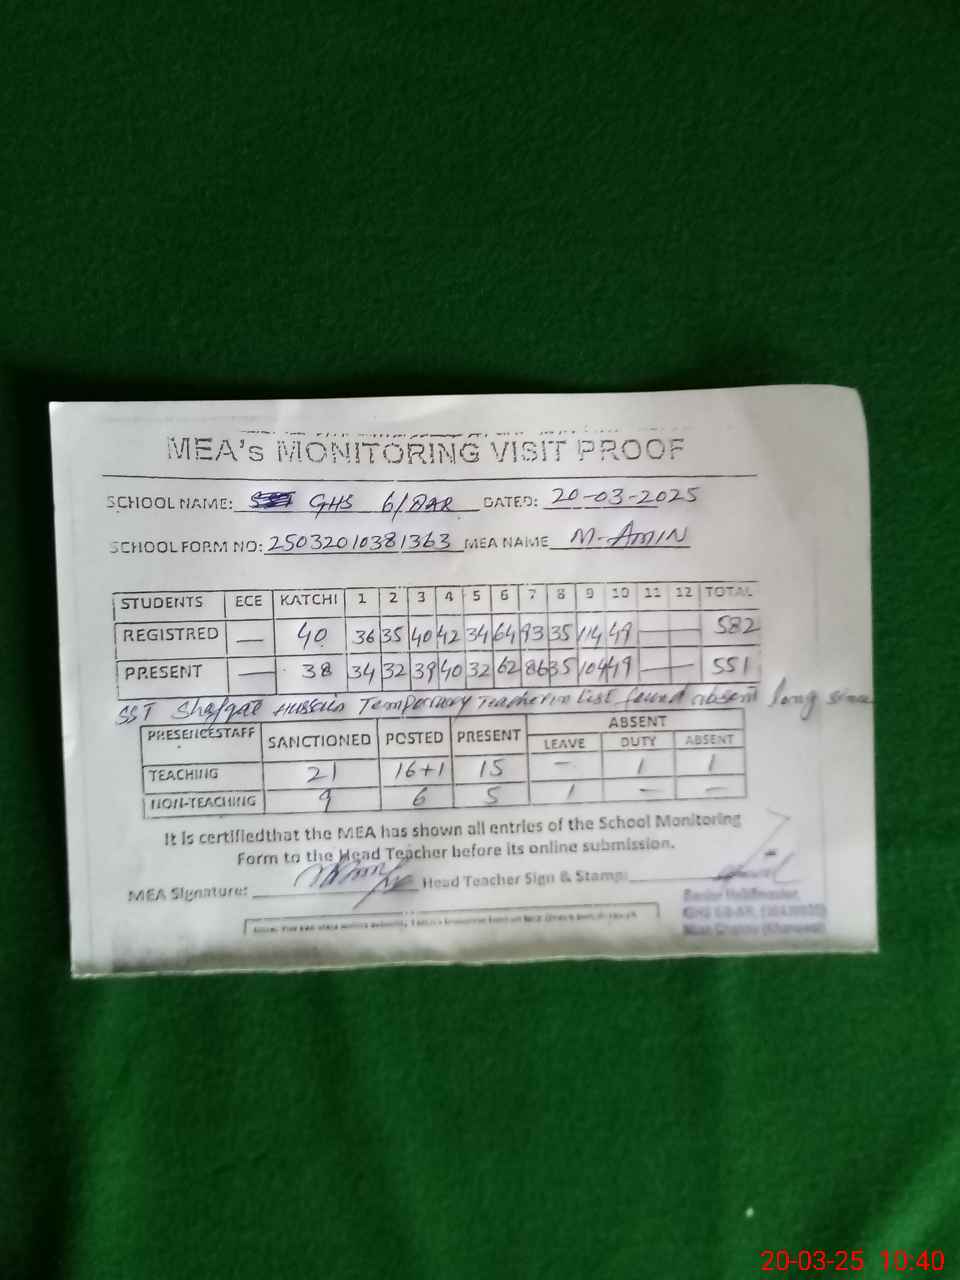 MEA's MONITORING VISIT PROOF
SCHOOL NAME: GHS 6/8AR DATED: 20-03-2025
SCHOOL FORM NO: 25032010381363 MEA NAME M-AMIN
STUDENTS ECE KATCHI 1 2 3 4 5 6 7 8 9 10 11 12 TOTAL
REGISTRED — 40 36 35 40 42 34 64 93 35 114 49 — — 582
PRESENT — 38 34 32 39 40 32 62 86 35 104 49 — — 551
SST Shafqat Hussain Temporary Teacher in list found absent long since
PRESENCESTAFF SANCTIONED POSTED PRESENT ABSENT
LEAVE DUTY ABSENT
TEACHING 21 16+1 15 — 1 1
NON-TEACHING 9 6 5 1 — —
It is certifiedthat the MEA has shown all entries of the School Monitoring
Form to the Head Teacher before its online submission.
MEA Signature: Head Teacher Sign & Stamp:
Senior Headmaster
Mian Channu (Khanewal)
20-03-25 10:40